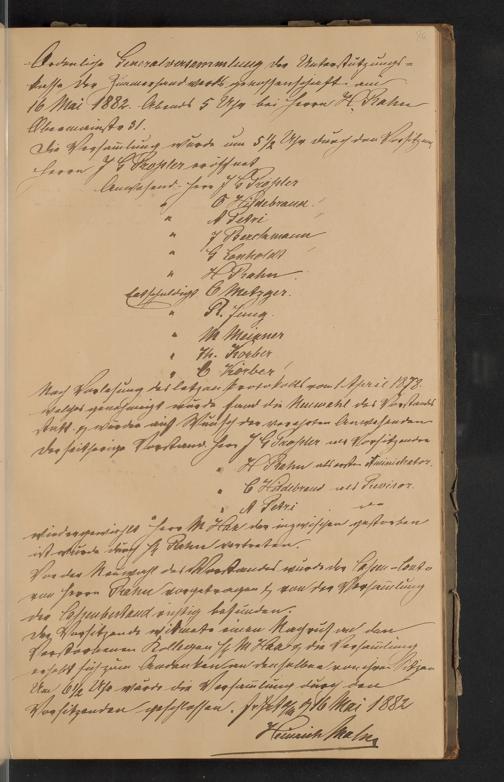 Ordentliche Generalversammlung der Unterstützungs-
kasse der Zimmerhandwerks genossenschaft am
16 Mai 1882. Abends 5 Uhr bei Herrn H. Rahn
Obermainstr 31.
Die Versammlung wurde um 5 1/2 Uhr durch den Vorsitzen
Herrn J G eröffnet
Anwesend. Herr J G
" C Hildebrand.
" A Petri
" J
" G Lonholdt
" H Rahn.
Entschuldigt C Metzger.
" R. Jung.
" M Meixner
" Th. Körber
" C Körber
Nach Vorlesung des letzten Protokolls vom 1 April 1878.
welches genehmigt wurde fand die Neuwahl des Vorstandes
statt & wurde auf Wunsch der verehrten Anwesenden
der seitherige Vorstand. Herr J G als Vorsitzender
" H Rahn als ersten Administrator.
" C Hildebrand als Revisor.
" A Petri
wiedergewählt Herr M Haa der inzwischen gestorben
ist wurde durch H Rahn vertreten.
Vor der Neuwahl des Vorstandes wurde der Cassen-Conto
von Herrn Rahn vorgetragen & von der Versammlung
der Cassenbestand richtig befunden.
Der Vorsitzende widmete einen Nachruf an den
Verstorbenen Kollegen H M Haa & die Versammlung
erhebt sich zum Andenken an denselben von ihren Sitzen
Um 6 1/2 Uhr wurde die Versammlung durch den
Vorsitzenden geschlossen. 16 Mai 1882
Heinrich